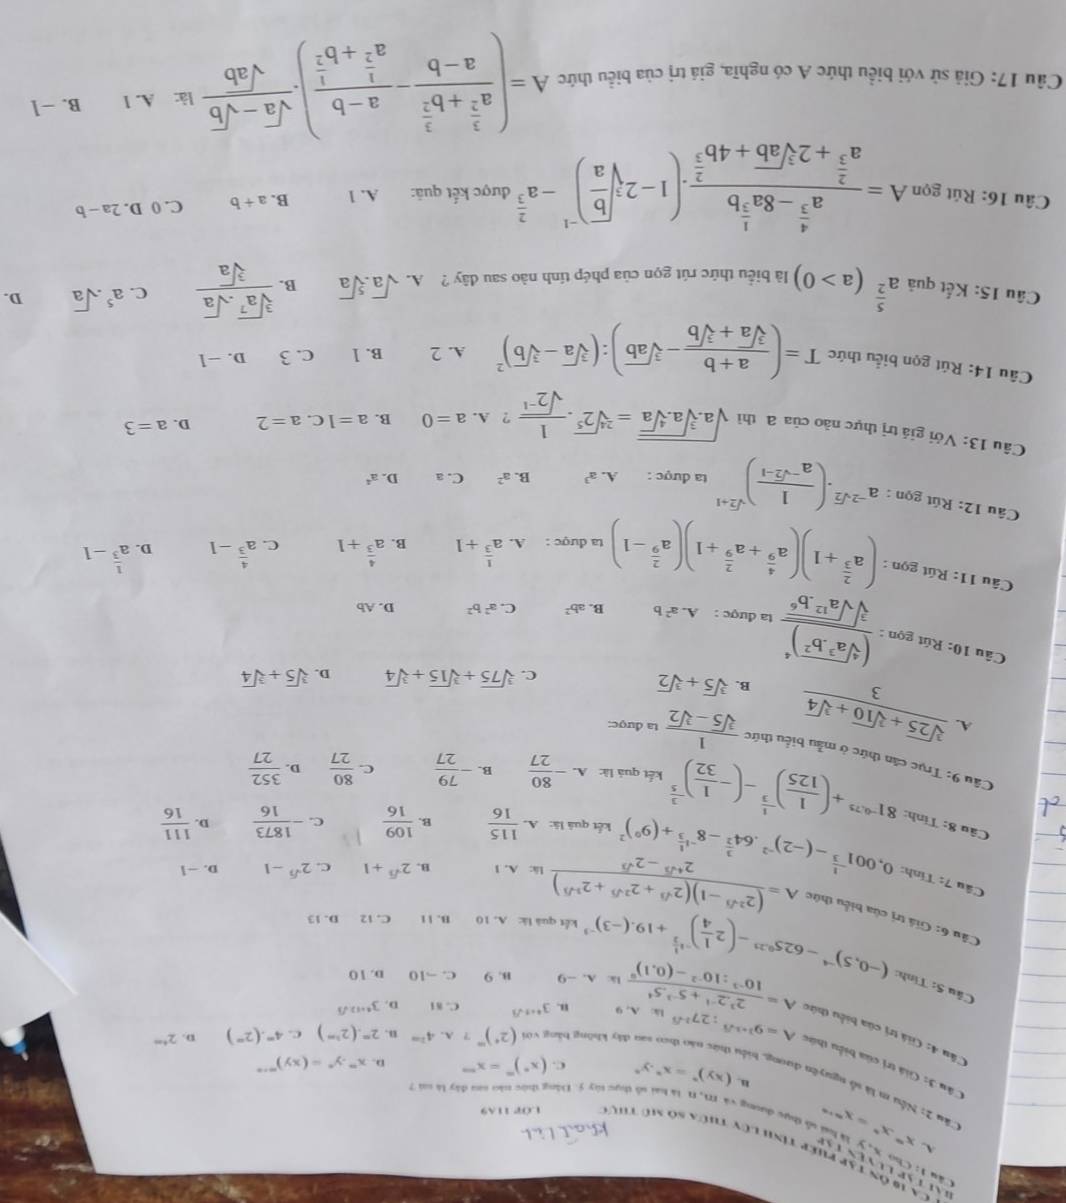 CA 10 ÔN TẬP PHÉP TÍNH LŨY THỪA SỐ MŨ THỰC LỚP 11A9
BÀI TẬP LUYỆN TẬP
Câu 1: Cho x, y là hai số thực dương và m, n là hai số thực tùy ý. Đẳng thức nào sau đây là sai ?
A. x^m.x^n = x^{m+n} B. (xy)^n = x^n.y^n C. (x^n)^m = x^{nm} D. x^m.y^n = (xy)^{m+n}
Câu 2: Nếu m là số nguyên dương, biểu thức nào theo sau đây không bằng với (2^4)^m ? A. 4^{2m} B. 2^m.(2^{3m}) C. 4^m.(2^m) D. 2^{4m}
Câu 3: Giá trị của biểu thức là A. 9 C. 81
Câu 4: Giá trị của biểu thức A = (2^3.2^{-1} + 5^{-3}.5^4)/(10^{-3}:10^{-2} − (0,1)^0) là: A. −9 B. 9 C. −10 D. 10
Câu 5: Tính: (−0,5)^{-4} − 625^{0,25} − (2 1/4)^{-1 1/2} + 19.(−3)^{-3} kết quả là: A. 10 B. 11 C. 12 D. 13
Câu 6: Giá trị của biểu thức là: A. 1 B. 2^{√3} + 1 C. 2^{√3} − 1 D. −1
Câu 7: Tính: 0,001^{-1/3} − (−2)^{-2}.64^{2/3} − 8^{-1 1/3} + (9^0)^2 kết quả là: A. 115/16 B. 109/16 C. −1873/16 D. 111/16
Câu 8: Tính: 81^{-0,75} + (1/125)^{-1/3} − (−1/32)^{-3/5} kết quả là: A. −80/27 B. −79/27 C. 80/27 D. 352/27
Câu 9: Trục căn thức ở mẫu biểu thức 1/(∛5 − ∛2) ta được:
A. (∛25 + ∛10 + ∛4)/3 B. ∛5 + ∛2 C. ∛75 + ∛15 + ∛4 D. ∛5 + ∛4
Câu 10: Rút gọn : (⁴√(a^3.b^2))^4 / ∛(√(a^{12}.b^6)) ta được : A. a^2 b B. ab^2 C. a^2 b^2 D. Ab
Câu 11: Rút gọn : (a^{2/3} + 1)(a^{4/9} + a^{2/9} + 1)(a^{2/9} − 1) ta được : A. a^{1/3} + 1 B. a^{4/3} + 1 C. a^{4/3} − 1 D. a^{1/3} − 1
Câu 12: Rút gọn : a^{-2√2}.(1/a^{-√2-1})^{√2+1} ta được : A. a^3 B. a^2 C. a D. a^4
Câu 13: Với giá trị thực nào của a thì √(a.∛(a.⁴√a)) = ²⁴√(2^5).1/√(2^{-1}) ? A. a = 0 B. a = 1 C. a = 2 D. a = 3
Câu 14: Rút gọn biểu thức T = ((a + b)/(∛a + ∛b) − ∛(ab)) : (∛a − ∛b)^2 A. 2 B. 1 C. 3 D. −1
Câu 15: Kết quả a^{5/2} (a > 0) là biểu thức rút gọn của phép tính nào sau đây ? A. √a.⁵√a B. (∛(a^7).√a)/∛a C. a^5.√a D.
Câu 16: Rút gọn A = (a^{4/3} − 8a^{1/3}b)/(a^{2/3} + 2∛(ab) + 4b^{2/3}).(1 − 2∛(b/a))^{-1} − a^{2/3} được kết quả: A. 1 B. a + b C. 0 D. 2a − b
Câu 17: Giả sử với biểu thức A có nghĩa, giá trị của biểu thức A = ((a^{3/2} + b^{3/2})/(a − b) − (a − b)/(a^{1/2} + b^{1/2})).(√a − √b)/√(ab) là: A. 1 B. −1